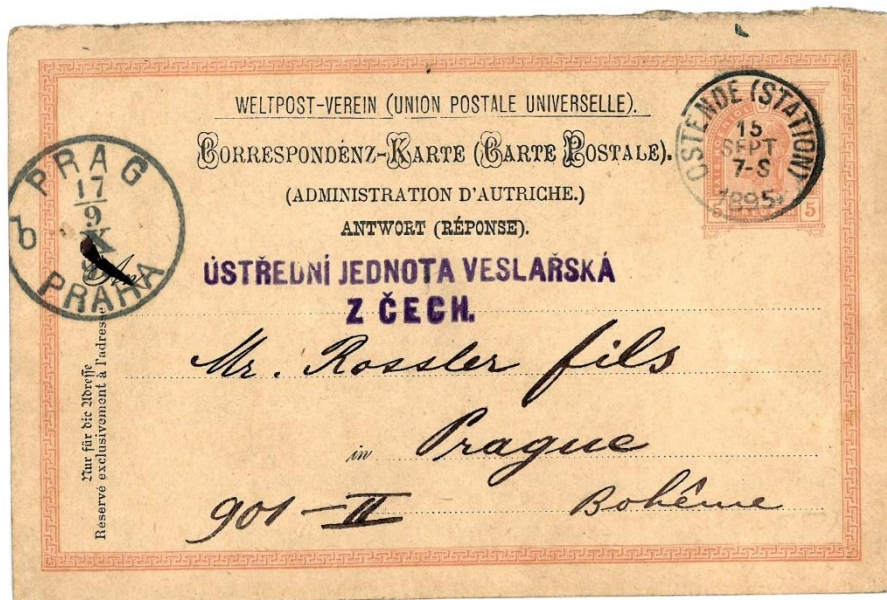 WELTPOST-VEREIN (UNION POSTALE UNIVERSELLE).
CORRESPONDENZ-KARTE (CARTE POSTALE).
(ADMINISTRATION D'AUTRICHE.)
ANTWORT (RÉPONSE).
OSTENDE (STATION)
15
SEPT
7-S
1895
5
PRAG
17
9
PRAHA
An
ÚSTŘEDNÍ JEDNOTA VESLAŘSKÁ
Z ČECH.
Mr. Rossler fils
in Prague
901-II Bohême
Nur für die Adresse
Reservé exclusivement à l'adresse